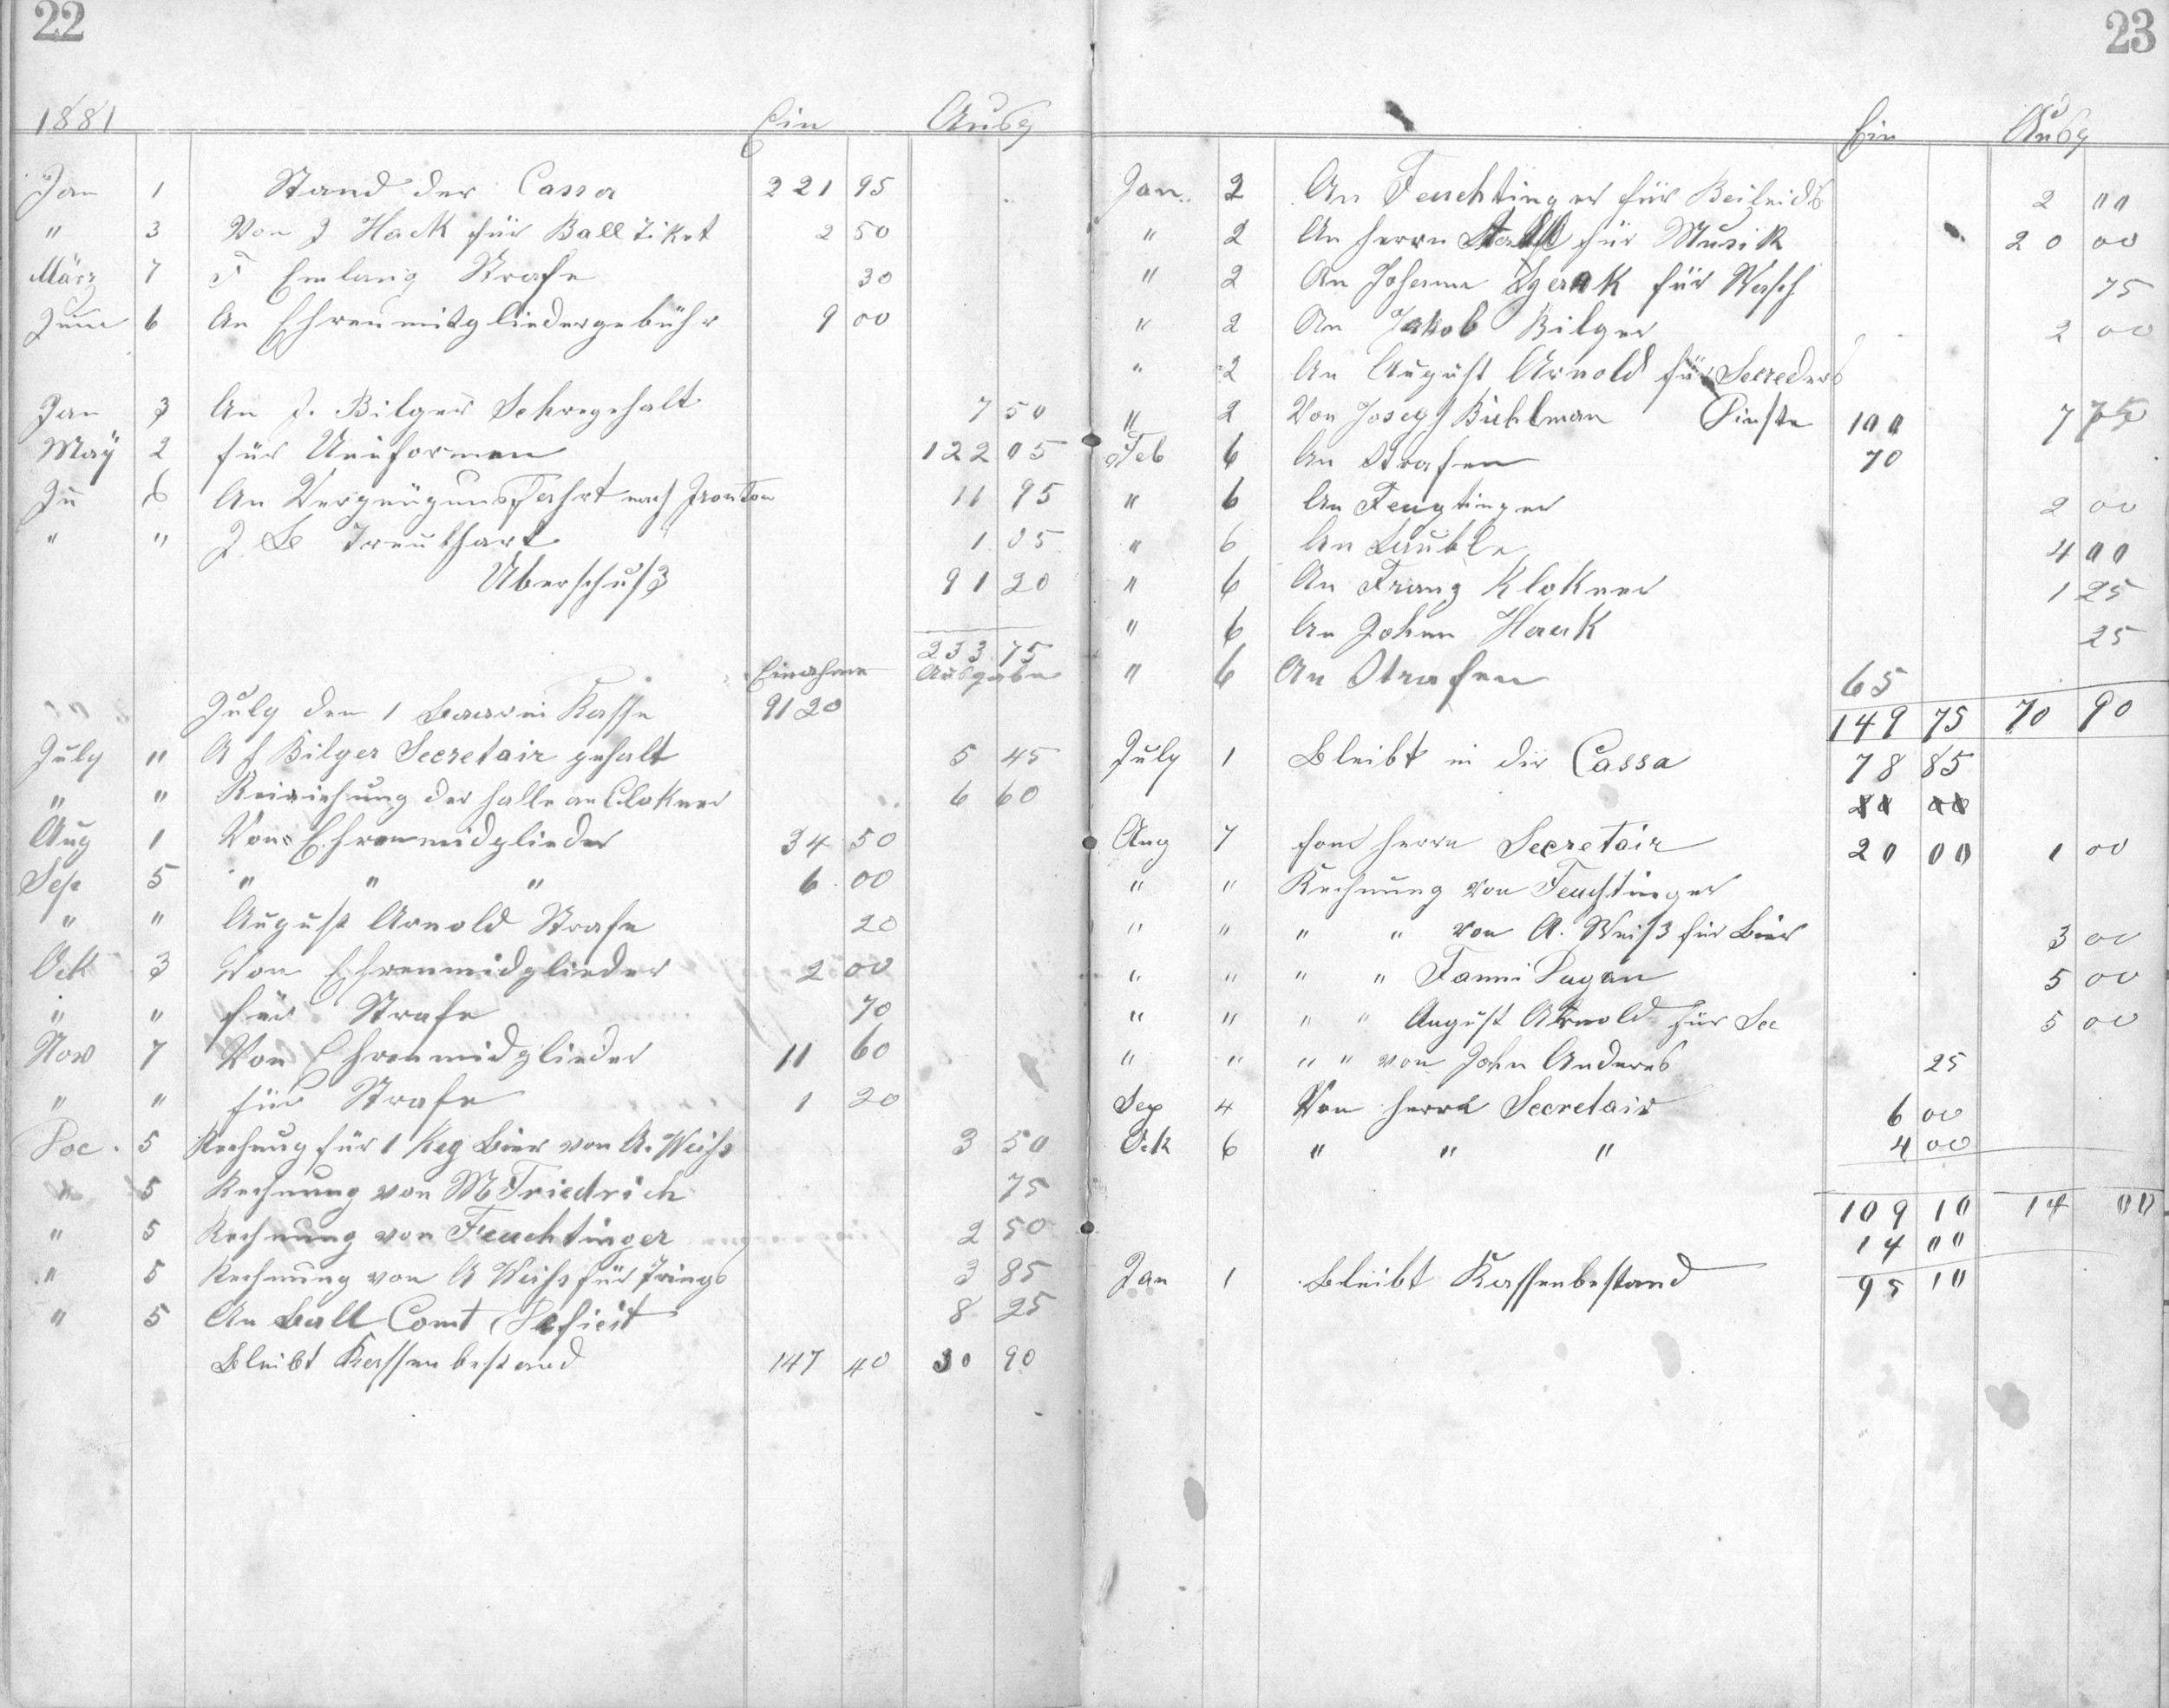 22
1881 Ein Ausg
Jan 1 Stand der Cassa 221 95
" 3 Von J Hack für Ball Tiket 2 50
März 7 F Emlang Strafe 30
June 6 An Ehrenmitgliedergebühr 9 00
Jan 3 An J. Bilger Sekregehalt 7 50
May 2 für Uniformen 122 05
Ju 6 An Vergnügunsfahrt nach Ironton 11 95
" " J B Treubhart 1 05
Uberschuß 91 20
233 75
Einahme Ausgabe
July den 1 Baar in Kasse 91 20
July " A J Bilger Secretair gehalt 5 45
" " der Halle an Clokner 6 60
Aug 1 Von Ehrenmidglieder 34 50
Sep 5 " " " 6 00
" " August Arnold Strafe 20
Ock 3 Von Ehrenmidglieder 2 00
" " für Strafe 70
Nov 7 Von Ehrenmidglieder 11 60
" " für Strafe 1 20
Dec. 5 Rechnug für 1 Keg Bier von A. Weiß 3 50
" 5 Rechnung von M Friedrich 75
" 5 Rechnung von Feuchtinger 2 50
" 5 Rechnung von A Weiß für 3 85
" 5 An Ball Comt Deficit 8 25
Bleibt Kassenbestand 147 40 30 90
23
Ein Ausg
Jan. 2 An Feuchtinger für 2 00
" 2 An Herrn für Musik 20 00
" 2 An Johann für Wasch 75
" 2 An Jakob Bilger 2 00
" 2 An August Arnold für
" 2 Von Joseph Buhlman 100 7 75
Feb 6 An Strafen 70
" 6 An Feugtinger 2 00
" 6 An Lauble 4 00
" 6 An Franz Klokner 1 25
" 6 An Johan Haak 25
" 6 An Strafen 65
149 75 70 90
July 1 Bleibt in der Cassa 78 85
20 00
Aug 7 fon Herrn Secretair 20 00 1 00
" " Rechnung von Feuchtinger
" " " " von A. Weiß für Bier 3 00
" " " " Fanni 5 00
" " " " August Arnold für Sec 5 00
" " " " von John Anderes 25
Sep 4 Von Herrn Secretair 6 00
Ock 6 " " " 4 00
109 10 14 00
14 00
Jan 1 Bleibt Kassenbestand 95 10